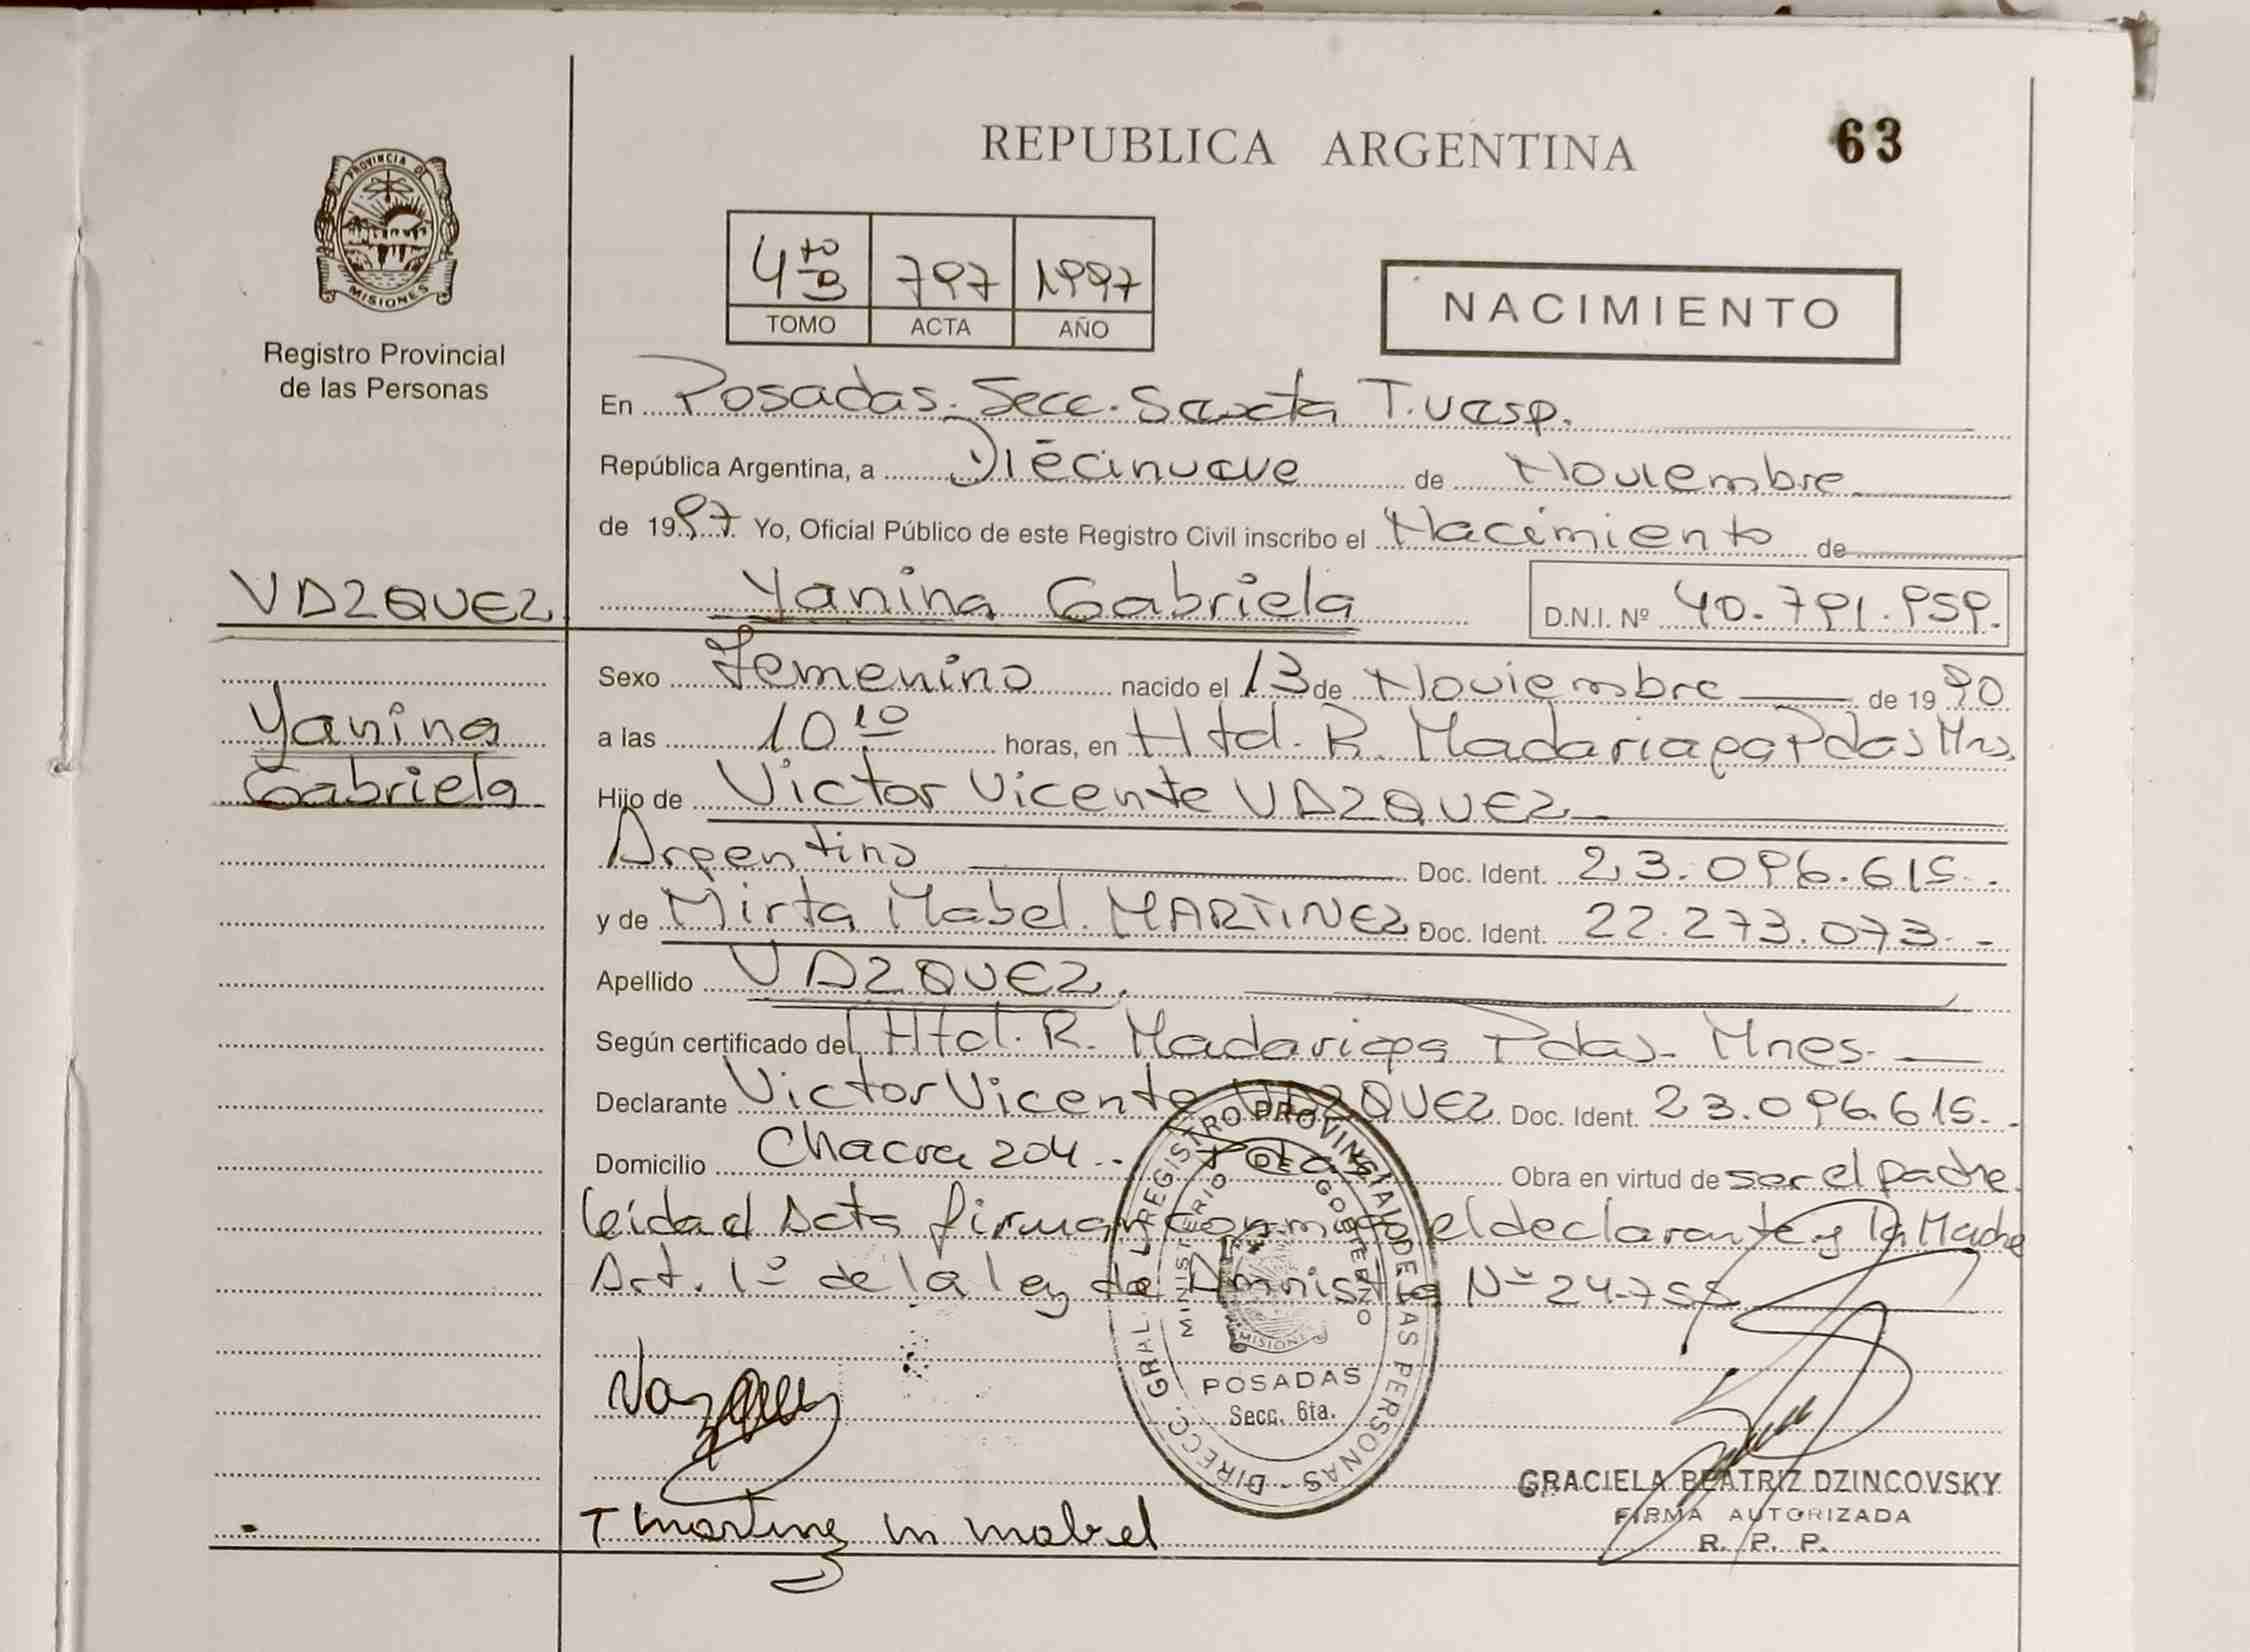 REPUBLICA ARGENTINA
63
PROVINCIA DE
MISIONES
Registro Provincial
de las Personas
4to B 797 1997
TOMO ACTA AÑO
NACIMIENTO
En Posadas. Secc. Sexta T.
República Argentina, a Diecinueve de Noviembre
de 1997 Yo, Oficial Público de este Registro Civil inscribo el Nacimiento de
VAZQUEZ Yanina Gabriela D.N.I. Nº 40.791.959.
Sexo Femenino nacido el 13 de Noviembre de 1990
Yanina a las 10 10 horas, en Htal. R. Madariaga Pdas Mns.
Gabriela Hijo de Victor Vicente VAZQUEZ
Argentino Doc. Ident. 23.096.615.
y de Mirta Mabel MARTINEZ Doc. Ident. 22.273.073.
Apellido VAZQUEZ.
Según certificado del Htal. R. Madariaga Pdas. Mnes.
Declarante Victor Vicente VAZQUEZ Doc. Ident. 23.096.615.
Domicilio Chacra 204.. Pdas Obra en virtud de ser el padre.
leida el Acta firman conmigo el declarante y la Madre
Art. 1º de la ley de Amnistia Nº 24.755
DIRECC. GRAL. REGISTRO PROVINCIAL DE LAS PERSONAS
MINISTERIO DE GOBIERNO
MISIONES
POSADAS
Secc. 6ta.
Vazquez
GRACIELA BEATRIZ DZINCOVSKY
FIRMA AUTORIZADA
R. P. P.
Martinez m mabel